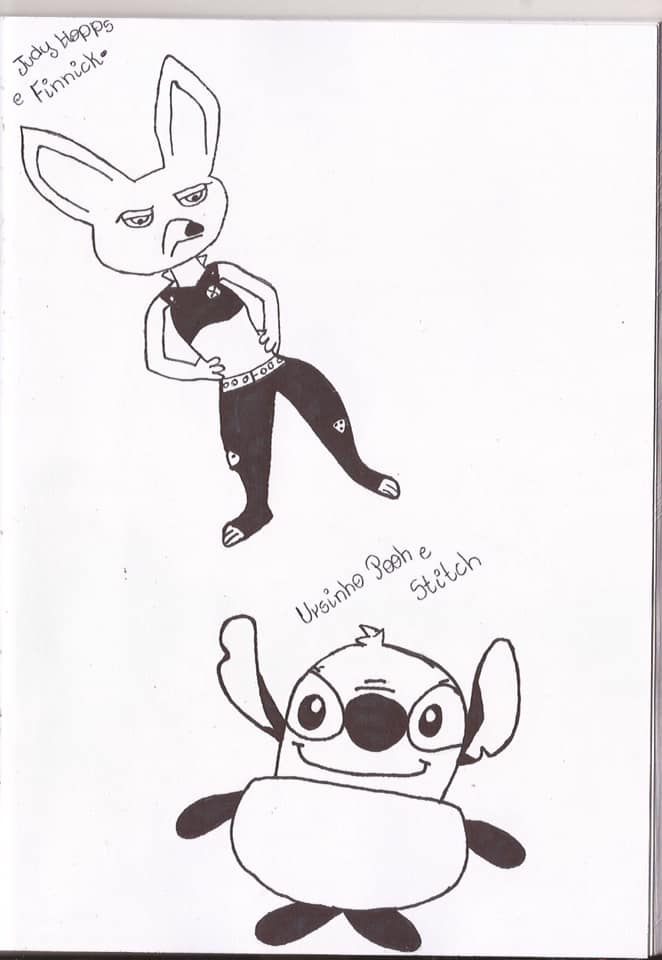 Judy Hopps
e Finnick.
Ursinho Pooh e
Stitch